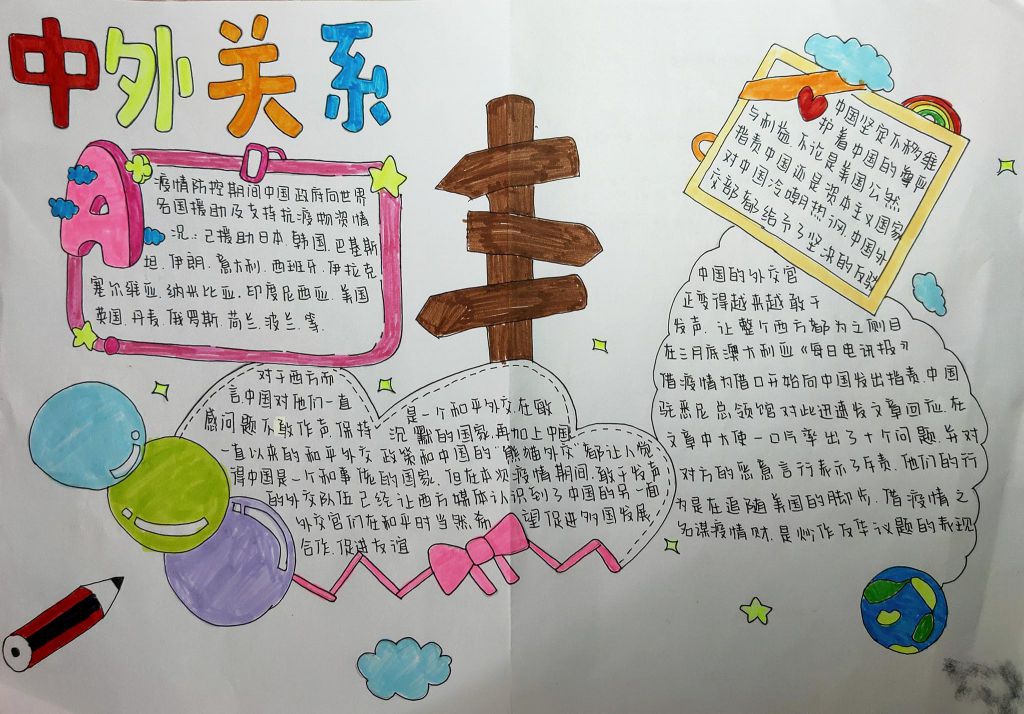 中外关系
疫情防控期间中国政府向世界
各国援助及支持抗疫物资情
况:已援助日本.韩国.巴基斯
坦.伊朗.意大利.西班牙.伊拉克
塞尔维亚.纳米比亚.印度尼西亚.美国
英国.丹麦.俄罗斯.荷兰.波兰.等.
对于西方而
言,中国对他们一直
感问题不敢作声.保持
一直以来的和平外交
是一个和平外交.在敏
沉默的国家,再加上中国
政策和中国的“熊猫外交”都让人觉
得中国是一个和事佬的国家.但在本次疫情期间.敢于发声
的外交队伍已经让西方媒体认识到了中国的另一面
外交官们在和平时当然希望促进多国发展
合作.促进友谊
中国坚定不移维
护着中国的尊严
与利益.不论是美国公然
指责中国还是资本主义国家
对中国冷嘲热讽.中国外
交部都给予了坚决的反驳
中国的外交官
正变得越来越敢于
发声.让整个西方都为之侧目
在三月底澳大利亚《每日电讯报》
借疫情为借口开始向中国发出指责.中国
驻悉尼总领馆对此迅速发文章回应.在
文章中大使一口气举出了十个问题.并对
对方的恶意言行表示了斥责.他们的行
为是在追随美国的脚步.借疫情之
名谋疫情财.是炒作反华议题的表现